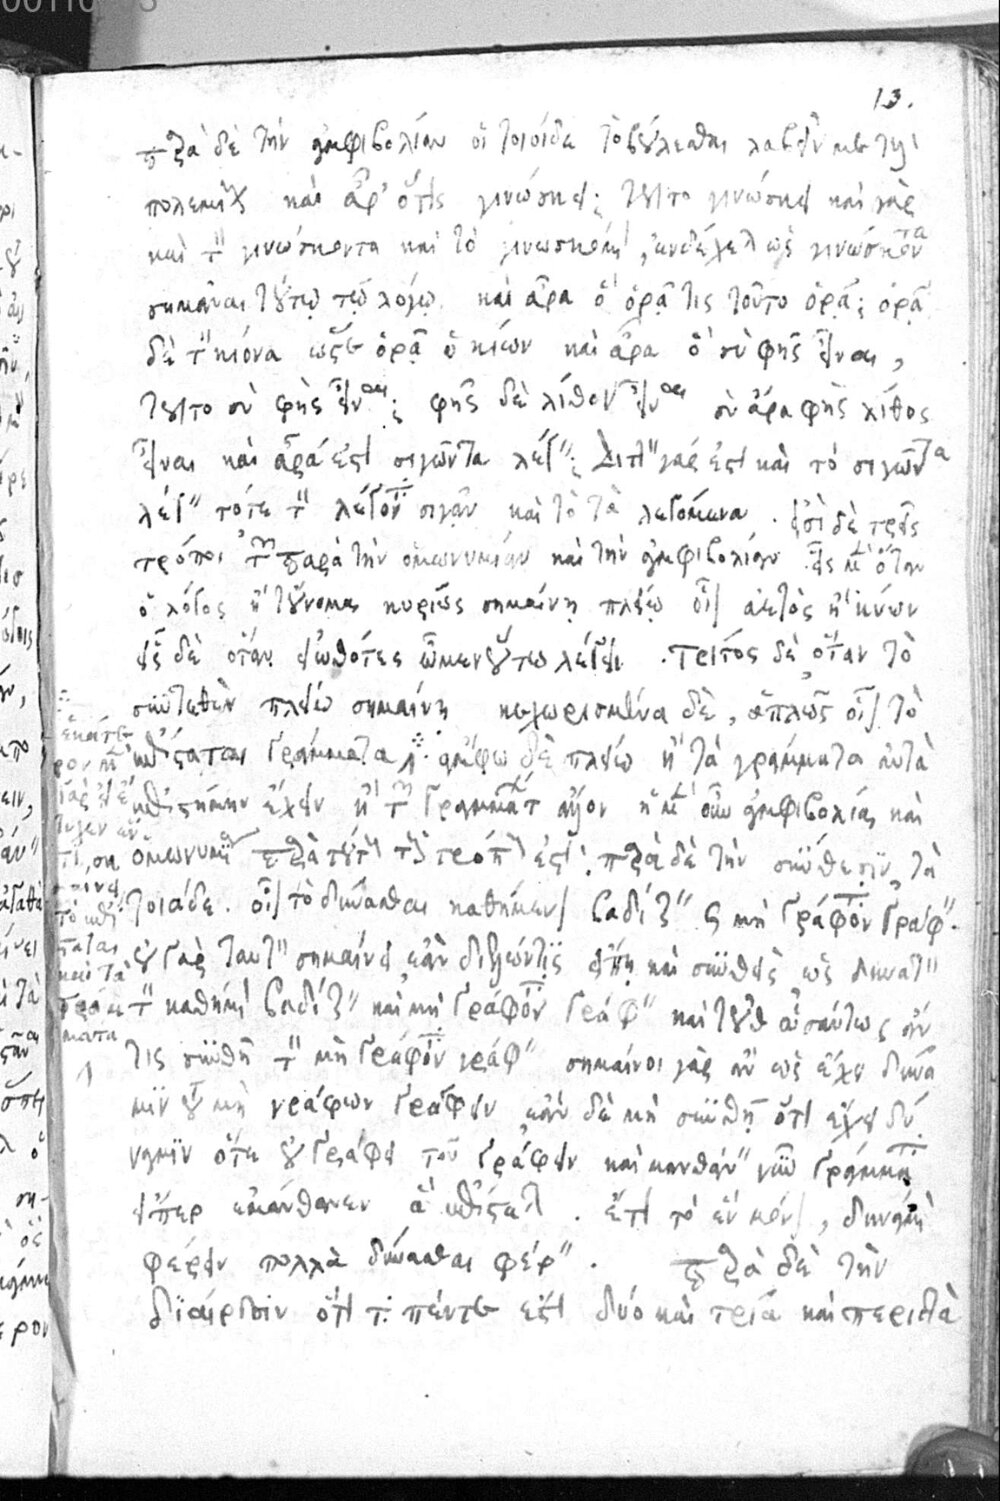 13.
παρὰ δὲ τὴν ἀμφιβολίαν οἱ τοιοίδε τὸ βούλεσθαι λαβεῖν με τοὺς
πολεμίους καὶ ἆρ' ὅ τις γινώσκει; τοῦτο γινώσκει καὶ γὰρ
καὶ τὸν γινώσκοντα καὶ τὸ γινωσκόμενον, ἐνδέχεται ὡς γινώσκοντα
σημῆναι τούτῳ τῷ λόγῳ. καὶ ἆρα ὃ ὁρᾷ τις τοῦτο ὁρᾷ; ὁρᾷ
δὲ τὸν κίονα ὥστε ὁρᾷ ὁ κίων καὶ ἆρα ὃ σὺ φῂς εἶναι,
τοῦτο σὺ φῂς εἶναι; φῂς δὲ λίθον εἶναι σὺ ἄρα φῂς λίθος
εἶναι καὶ ἆρά ἐστι σιγῶντα λέγειν; διττὸν γάρ ἐστι καὶ τὸ σιγῶντα
λέγειν τό τε τὸν λέγοντα σιγᾶν καὶ τὸ τὰ λεγόμενα. εἰσὶ δὲ τρεῖς
τρόποι τῶν παρὰ τὴν ὁμωνυμίαν καὶ τὴν ἀμφιβολίαν εἷς μὲν ὅταν
ὁ λόγος ἢ τοὔνομα κυρίως σημαίνῃ πλείω οἷον ἀετὸς ἢ κύων
εἷς δὲ ὅταν εἰωθότες ὦμεν οὕτω λέγειν. τρίτος δὲ ὅταν τὸ
συντεθὲν πλείω σημαίνῃ κεχωρισμένα δὲ, ἁπλῶς οἷον τὸ
ἐπίσταται γράμματα. ἄμφω δὲ πλείω ἢ τὰ γράμματα αὐτὰ
ἐπιστήμην ἔχειν ἢ τῶν γραμμάτων ἄλλον ἡ μὲν οὖν ἀμφιβολία καὶ
ὁμωνυμία παρὰ τούτους τοὺς τρόπους ἐστί. παρὰ δὲ τὴν σύνθεσιν, τὰ
τοιάδε. οἷον τὸ δύνασθαι καθήμενον βαδίζειν καὶ μὴ γράφοντα γράφειν.
οὐ γὰρ ταυτὸν σημαίνει ἐὰν διελών τις εἴπῃ καὶ συνθεὶς ὡς δυνατὸν
τὸν καθήμενον βαδίζειν καὶ μὴ γράφοντα γράφειν καὶ τοῦθ' ὡσαύτως ἄν
τις συνθῇ τὸν μὴ γράφοντα γράφειν σημαίνοι γὰρ ἂν ὡς ἔχει δύνα
μιν τοῦ μὴ γράφων γράφειν ἐὰν δὲ μὴ συνθῇ ὅτι ἔχει δύ
ναμιν ὅτε οὐ γράφει τοῦ γράφειν καὶ μανθάνειν νῦν γράμματα
εἴπερ ἐμάνθανεν ἃ ἐπίσταται. ἔτι τὸ ἓν μόνον, δυνάμενον
φέρειν πολλὰ δύνασθαι φέρειν. παρὰ δὲ τὴν
διαίρεσιν ὅτι τὰ πέντε ἐστὶ δύο καὶ τρία καὶ περιττὰ
ἑκάτε
ρον μὲν
γὰρ εἰ ἔ
τυχεν ἕν
τι, ση
μαίνει
τὸ ἐπί
σταται
καὶ τὰ
γράμ
ματα